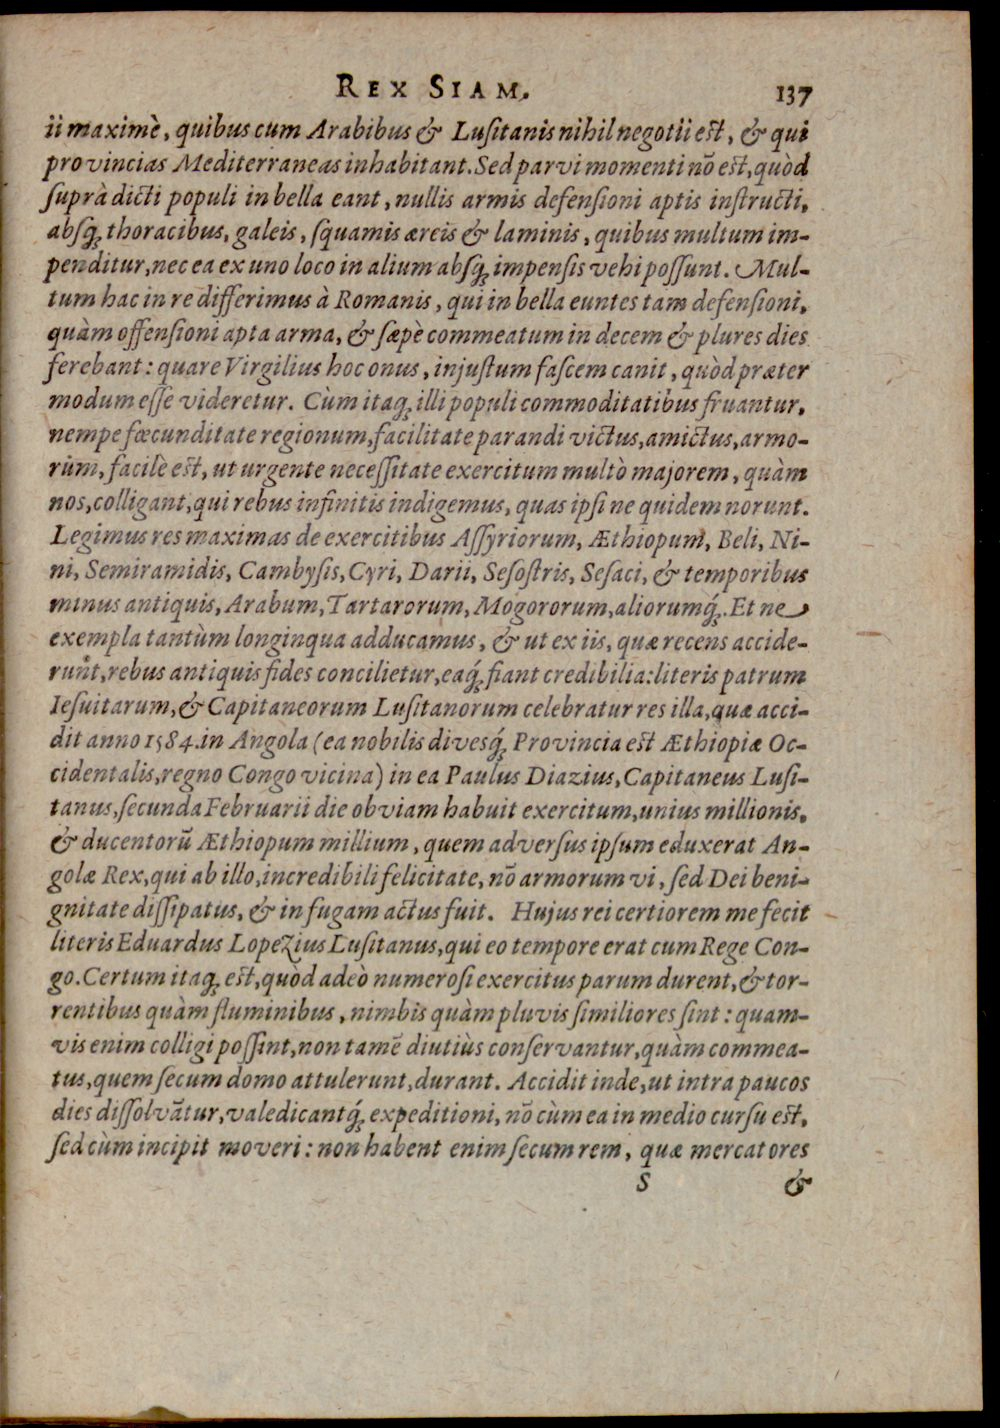 REX SIAM. 137
ii maximè, quibus cum Arabibus & Luſitanis nihil negotii est, & qui
provincias Mediterraneas inhabitant. Sed parvi momenti nõ est, quòd
ſuprà dicti populi in bella eant, nullis armis defenſioni aptis inſtructi,
abſq; thoracibus, galeis, ſquamis æreis & laminis, quibus multum im-
penditur, nec ea ex uno loco in alium abſq; impenſis vehi poſſunt. Mul-
tum hac in re differimus à Romanis, qui in bella euntes tam defenſioni,
quàm offenſioni apta arma, & ſæpè commeatum in decem & plures dies
ferebant: quare Virgilius hoc onus, injuſtum faſcem canit, quòd præter
modum eſſe videretur. Cùm itaq; illi populi commoditatibus fruantur,
nempe fœcunditate regionum, facilitate parandi victus, amictus, armo-
rùm, facilè est, ut urgente neceſſitate exercitum multò majorem, quàm
nos, colligant, qui rebus infinitis indigemus, quas ipſi ne quidem norunt.
Legimus res maximas de exercitibus Aſſyriorum, Æthiopum, Beli, Ni-
ni, Semiramidis, Cambyſis, Cyri, Darii, Seſoſtris, Seſaci, & temporibus
minus antiquis, Arabum, Tartarorum, Mogororum, aliorumq́;. Et ne
exempla tantùm longinqua adducamus, & ut ex iis, quæ recens accide-
runt, rebus antiquis fides concilietur, eaq́; fiant credibilia: literis patrum
Ieſuitarum, & Capitaneorum Luſitanorum celebratur res illa, quæ acci-
dit anno 1584. in Angola (ea nobilis divesq́; Provincia est Æthiopiæ Oc-
cidentalis, regno Congo vicina) in ea Paulus Diazius, Capitaneus Luſi-
tanus, ſecunda Februarii die obviam habuit exercitum, unius millionis,
& ducentorũ Æthiopum millium, quem adverſus ipſum eduxerat An-
golæ Rex, qui ab illo, incredibili felicitate, nõ armorum vi, ſed Dei beni-
gnitate diſſipatus, & in fugam actus fuit. Hujus rei certiorem me fecit
literis Eduardus Lopezius Luſitanus, qui eo tempore erat cum Rege Con-
go. Certum itaq; est, quòd adeò numeroſi exercitus parum durent, & tor-
rentibus quàm fluminibus, nimbis quàm pluvis ſimiliores ſint: quam-
vis enim colligi poſſint, non tamẽ diutiùs conſervantur, quàm commea-
tus, quem ſecum domo attulerunt, durant. Accidit inde, ut intra paucos
dies diſſolvãtur, valedicantq́; expeditioni, nõ cùm ea in medio curſu est,
ſed cùm incipit moveri: non habent enim ſecum rem, quæ mercatores
S &